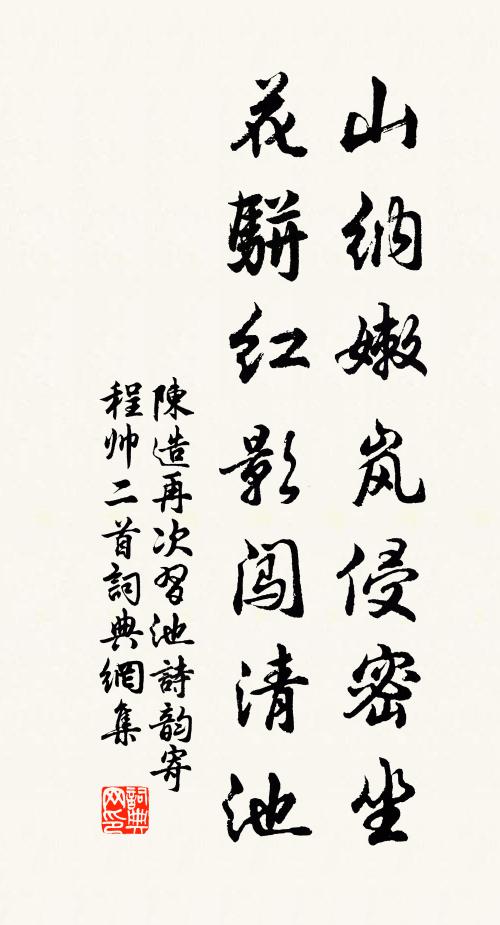 山纳嫩岚侵密坐
花駢红影闯清池
陳造再次习池詩韵寄
程帅二首詞典網集
詞典网印